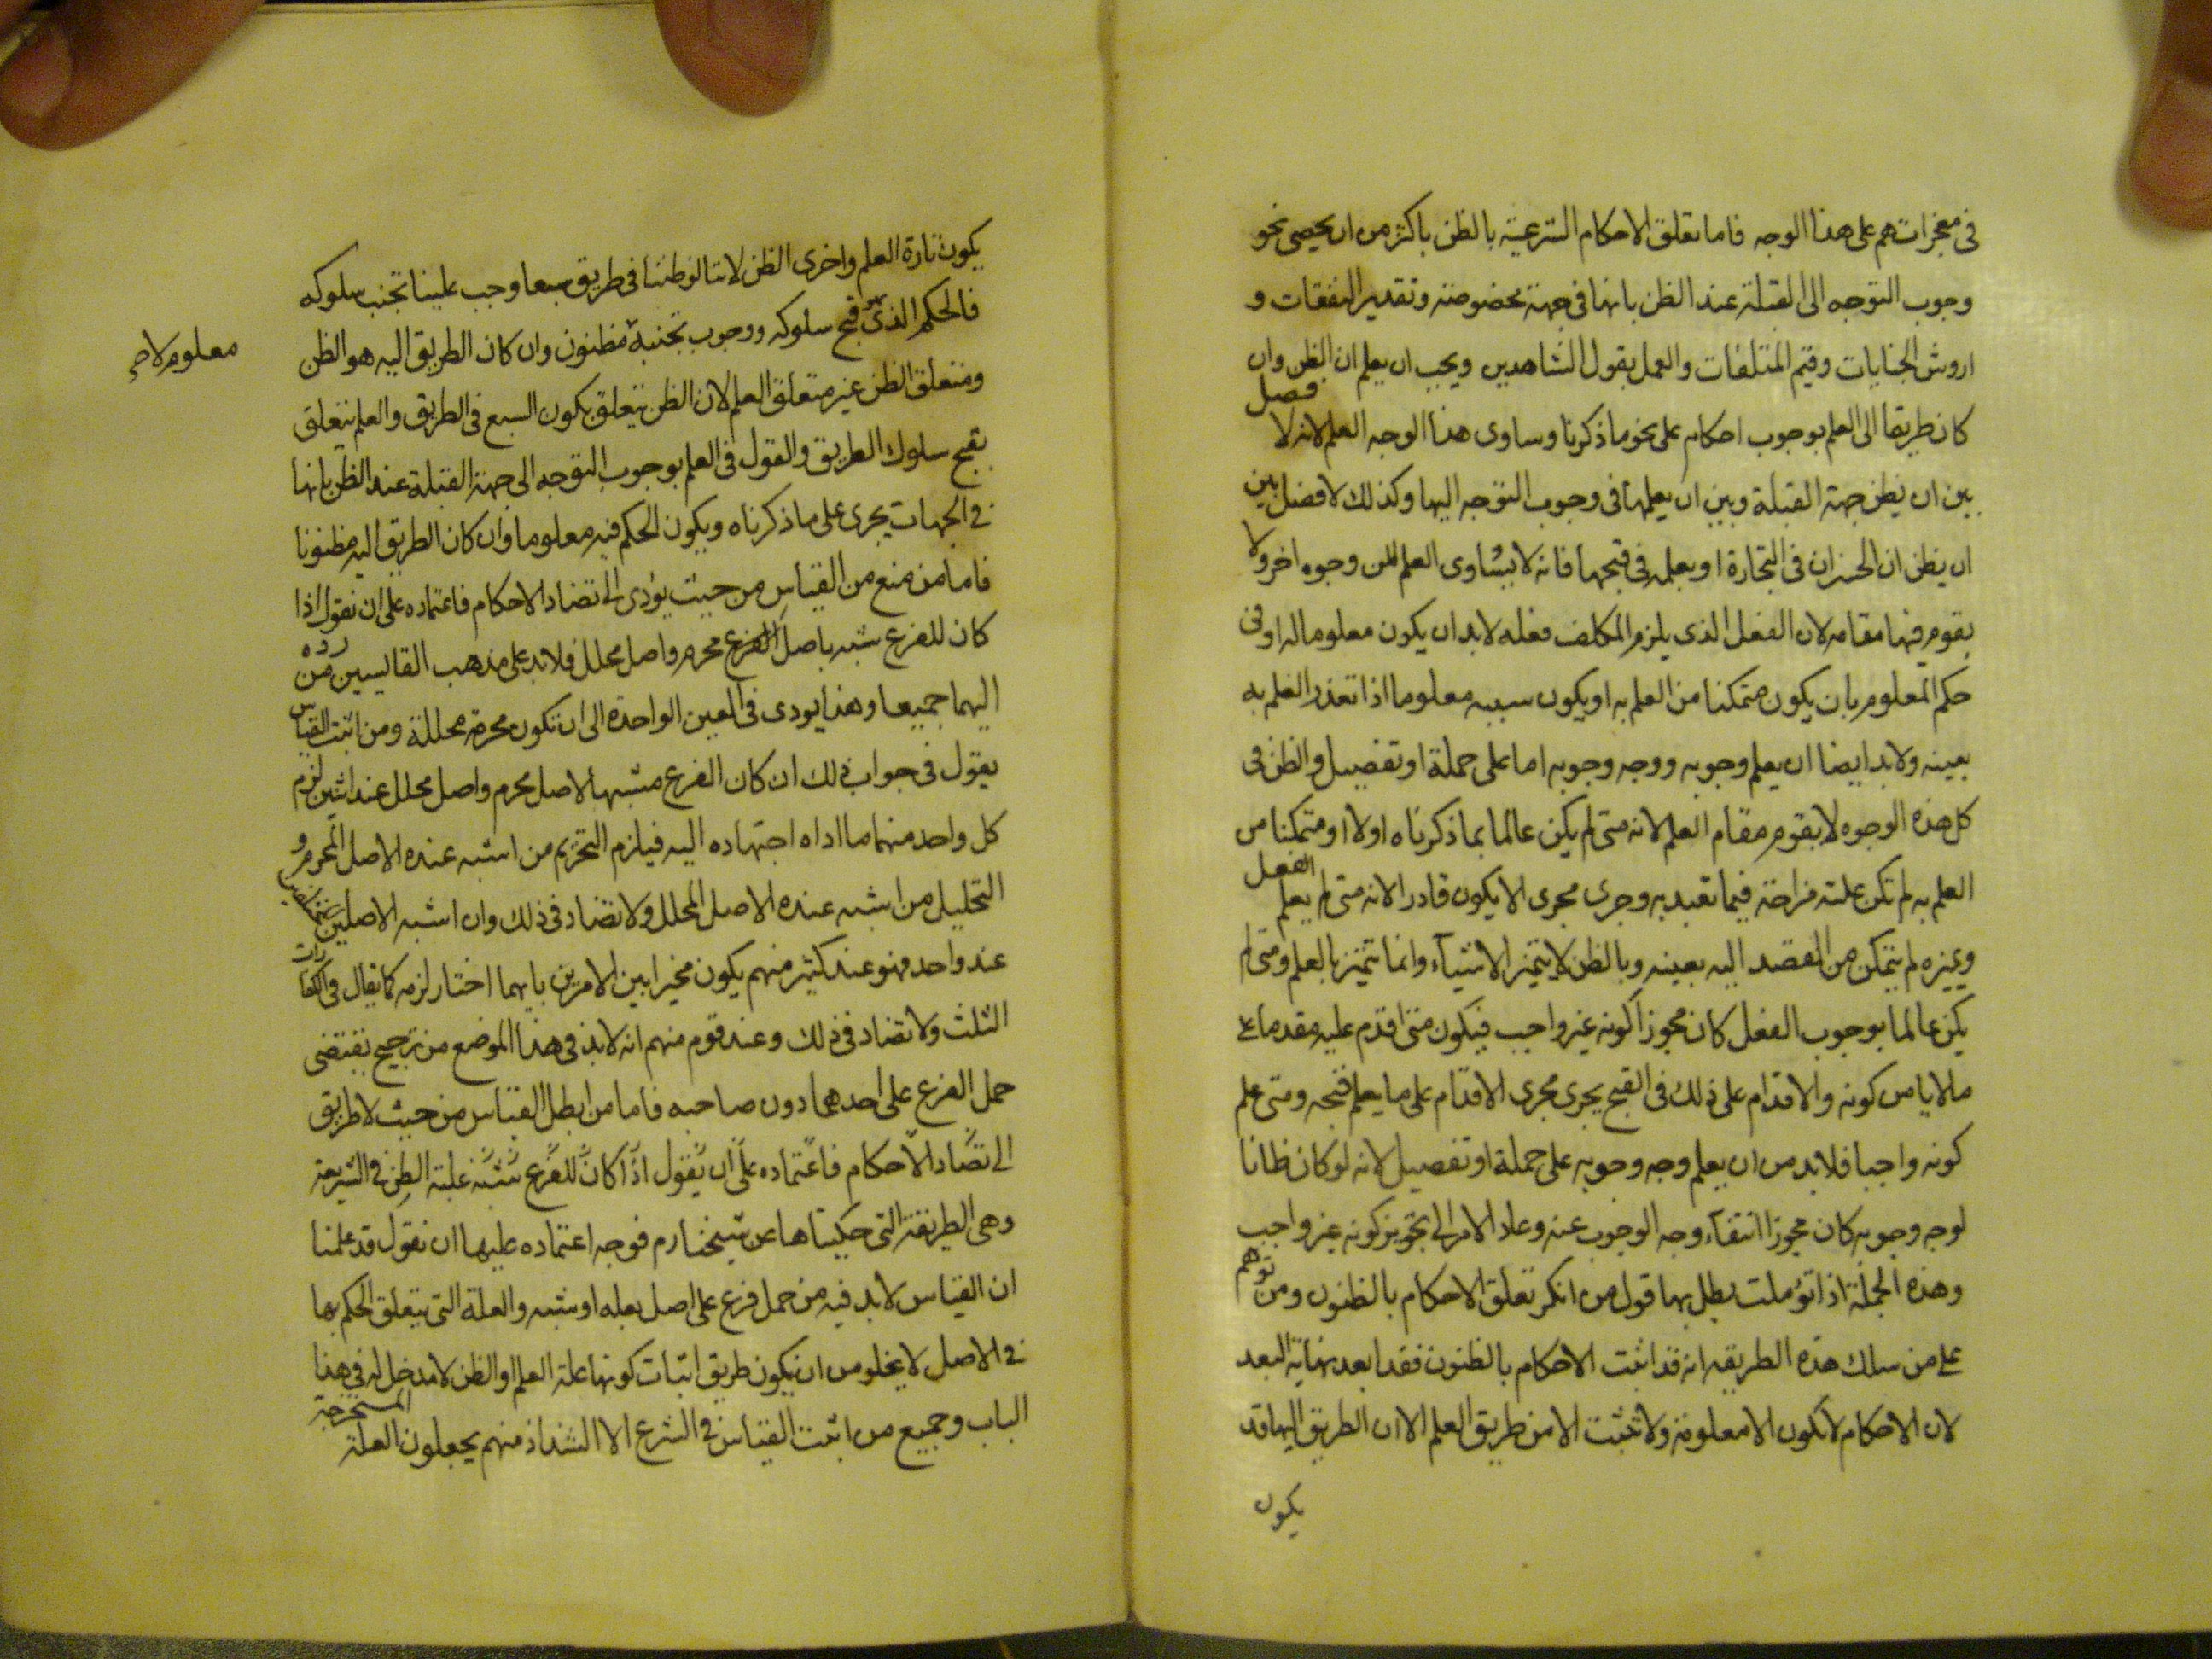 فى معجزاتهم على هذا الوجه فاما تعلق الاحكام الشرعية بالظن باكثر من ان يحصى نحو
وجوب التوجه الى القبلة عند الظن بانها فى جهة مخصوصة وتقدير النفقات و
اروش الجنايات وقيم المتلفات والعمل بقول الشاهدين ويجب ان يعلم ان الظن وان
كان طريقا الى العلم بوجوب احكام على نحو ما ذكرنا وساوى هذا الوجه العلم لانه لا فصل
بين ان يظن جهة القبلة وبين ان يعلمها فى وجوب التوجه اليها وكذلك لا فصل بين
ان يظن الخسران فى التجارة او يعلمه فى قبحها فانه لا يساوى العلم من وجوه اخر ولا
يقوم فيها مقامه لان الفعل الذى يلزم المكلف فعله لابد ان يكون معلوما له او فى
حكم المعلوم بان يكون متمكنا من العلم به او يكون سببه معلوما اذا تعذر العلم به
بعينه ولابد ايضا ان يعلم وجوبه ووجه وجوبه اما على جملة او تفصيل والظن فى
كل هذه الوجوه لا يقوم مقام العلم لانه متى لم يكن عالما بما ذكرناه اولا او متمكنا من
العلم به لم تكن علته مزاحة فيما تعبد به وجرى مجرى الا يكون قادرا لانه متى لم يعلم الفعل
ويميزه لم يتمكن من القصد اليه بعينه وبالظن لا يتميز الاشياء وانما تتميز بالعلم ومتى لم
يكن عالما بوجوب الفعل كان مجوزا كونه غير واجب فيكون متى اقدم عليه مقدما على
ما لا يامن كونه والاقدام على ذلك فى القبح يجرى مجرى الاقدام على ما يعلم قبحه ومتى علم
كونه واجبا فلابد من ان يعلم وجه وجوبه على جملة او تفصيل لانه لو كان ظانا
لوجه وجوبه كان مجوزا انتفاء وجه الوجوب عنه وعاد الامر الى تجويز كونه غير واجب
وهذه الجملة اذا تؤملت بطل بها قول من انكر تعلق الاحكام بالظنون ومن توهم
على من سلك هذه الطريقه انه قد اثبت الاحكام بالظنون فقد ابعد نهاية البعد
لان الاحكام لا تكون الا معلومة ولا تثبت الا من طريق العلم الا ان الطريق اليها قد
يكون
يكون تارة العلم واخرى الظن لاننا لو ظننا فى طريق سبعا وجب علينا تجنب سلوكه
فالحكم الذى هو قبح سلوكه ووجوب تجنبه مظنون وان كان الطريق اليه هو الظن
معلوم لا
ومتعلق الظن غير متعلق العلم لان الظن يتعلق بكون السبع فى الطريق والعلم يتعلق
بقبح سلوك الطريق والقول فى العلم بوجوب التوجه الى جهة القبلة عند الظن بانها
فى الجهات يجرى على ما ذكرناه ويكون الحكم فيه معلوما وان كان الطريق اليه مظنونا
فاما من منع من القياس من حيث يؤدى الى تضاد الاحكام فاعتماده على ان نقول اذا
كان للفرع شبه باصل الفرع محرم واصل محلل فلابد على مذهب القايسين من رده
اليهما جميعا وهذا يودى فى العين الواحدة الى ان تكون محرمة محللة ومن اثبت القياس
يقول فى جواب ذلك ان كان الفرع مشبها لاصل محرم واصل محلل عند اثنين لزم
كل واحد منهما ما اداه اجتهاده اليه فيلزم التحريم من اشبه عنده الاصل المحرم و
التحليل من اشبه عنده الاصل المحلل ولا تضاد فى ذلك وان اشبه الاصلين
عند واحد فهو عند كثير منهم يكون مخيرا بين الامرين بايهما اختار لزمه كما يقال فى الكفارات
الثلث ولا تضاد فى ذلك وعند قوم منهم انه لابد فى هذا الموضع من ترجيح يقتضى
حمل الفرع على احدهما دون صاحبه فاما من ابطل القياس من حيث لا طريق
الى تضاد الاحكام فاعتماده على ان يقول اذا كان للفرع شبه علبة الظن فى الشريعة
وهى الطريقة التى حكيناها عن شيخنا رم فوجه اعتماده عليها ان نقول قد علمنا
ان القياس لابد فيه من حمل فرع على اصل بعله او شبه والعلة التى يتعلق الحكم بها
فى الاصل لا يخلو من ان يكون طريق اثبات كونها علة العلم او الظن لا مدخل له فى هذا
الباب وجميع من اثبت القياس فى الشرع الا الشذاذ منهم يجعلون العلة المستخرجة